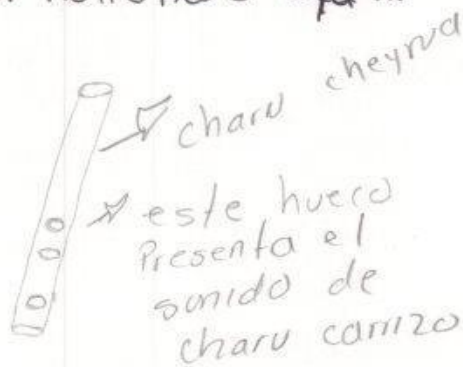 charu cheyrua
este hueco
Presenta el
sonido de
charu carrizo